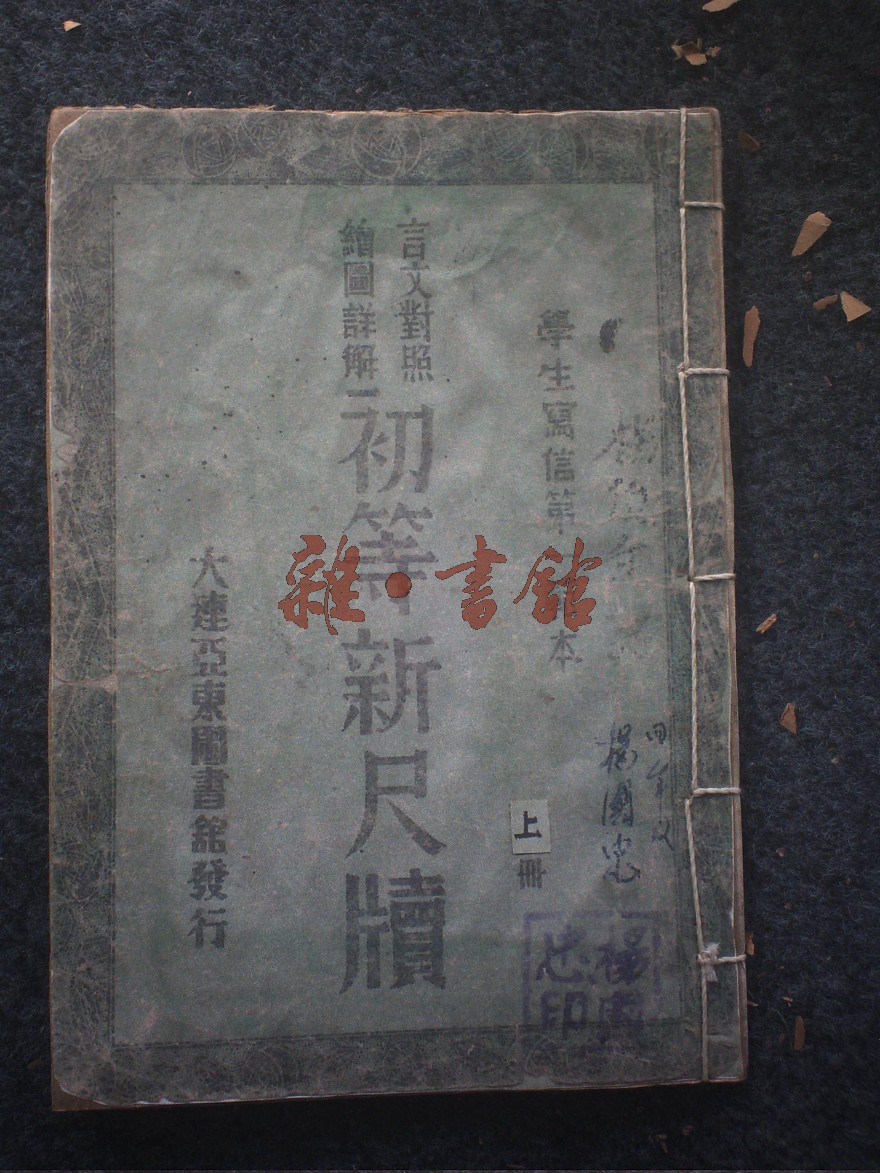 楊國忠
學生寫信第一範本
上
冊
言文對照
繪圖詳解
初等新尺牘
大連亞東圖書館發行
楊國
忠印
雜·書館